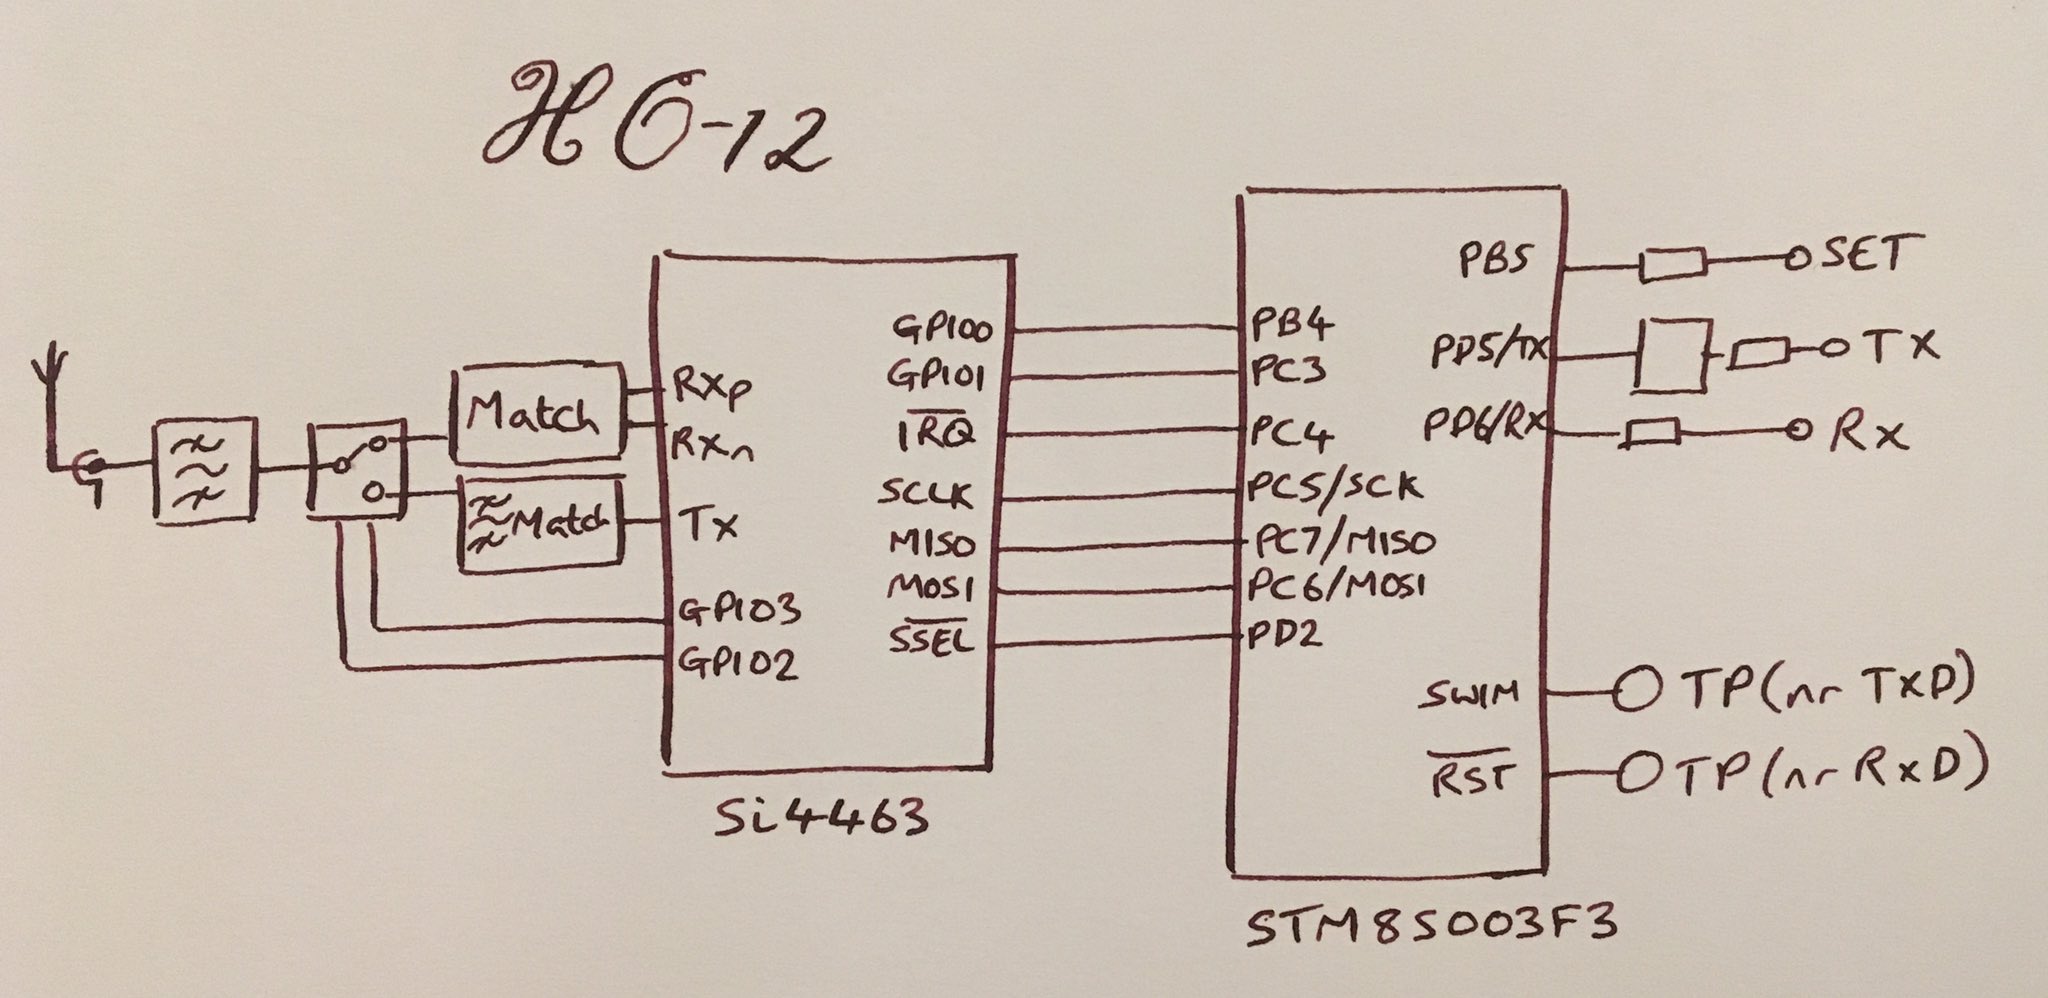 HC-12
Match
Match
RXp
RXn
Tx
GPIO3
GPIO2
GPIO0
GPIO1
IRQ
SCLK
MISO
MOSI
SSEL
Si4463
PB4
PC3
PC4
PC5/SCK
PC7/MISO
PC6/MOSI
PD2
PB5
PD5/TX
PD6/RX
SWIM
RST
STM8S003F3
SET
Tx
Rx
TP(nr TxD)
TP(nr RxD)